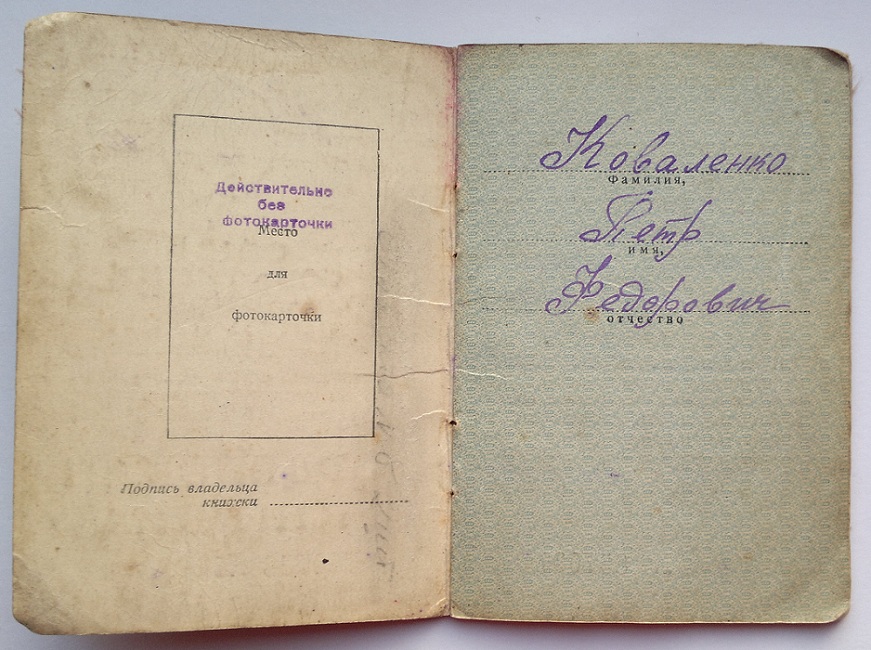 Действительно
без
фотокарточки
Место
для
фотокарточки
Подпись владельца
книжки
Коваленко
Фамилия,
Петр
имя,
Федорович
отчество